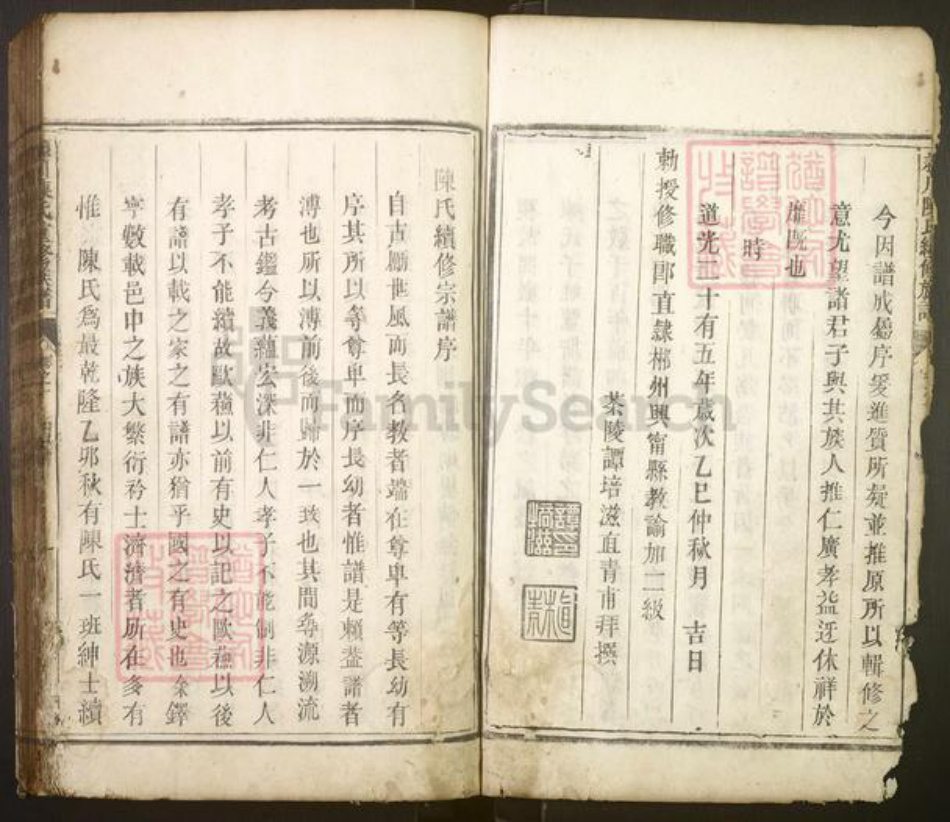 今因譜成彙序爰進質所疑並推原所以輯修之
意尤望諸君子與其族人推仁廣孝益迓休祥於
靡既也
時
道光二十有五年歲次乙巳仲秋月 吉日
勅授修職郎直隸郴州興甯縣教諭加二級
茶陵譚培滋直青甫拜撰
陳氏續修宗譜序
自古勵世風而長名教者端在尊卑有等長幼有
序其所以等尊卑而序長幼者惟譜是賴葢譜者
溥也所以溥前後而歸於一致也其間尋源溯流
考古鑑今義蘊宏深非仁人孝子不能制非仁人
孝子不能續故歐蘓以前有史以記之歐蘓以後
有譜以載之家之有譜亦猶乎國之有史也余鐸
寧數載邑中之族大繁衍衿士濟濟者所在多有
惟 陳氏爲最乾隆乙卯秋有陳氏一班紳士續
FamilySearch